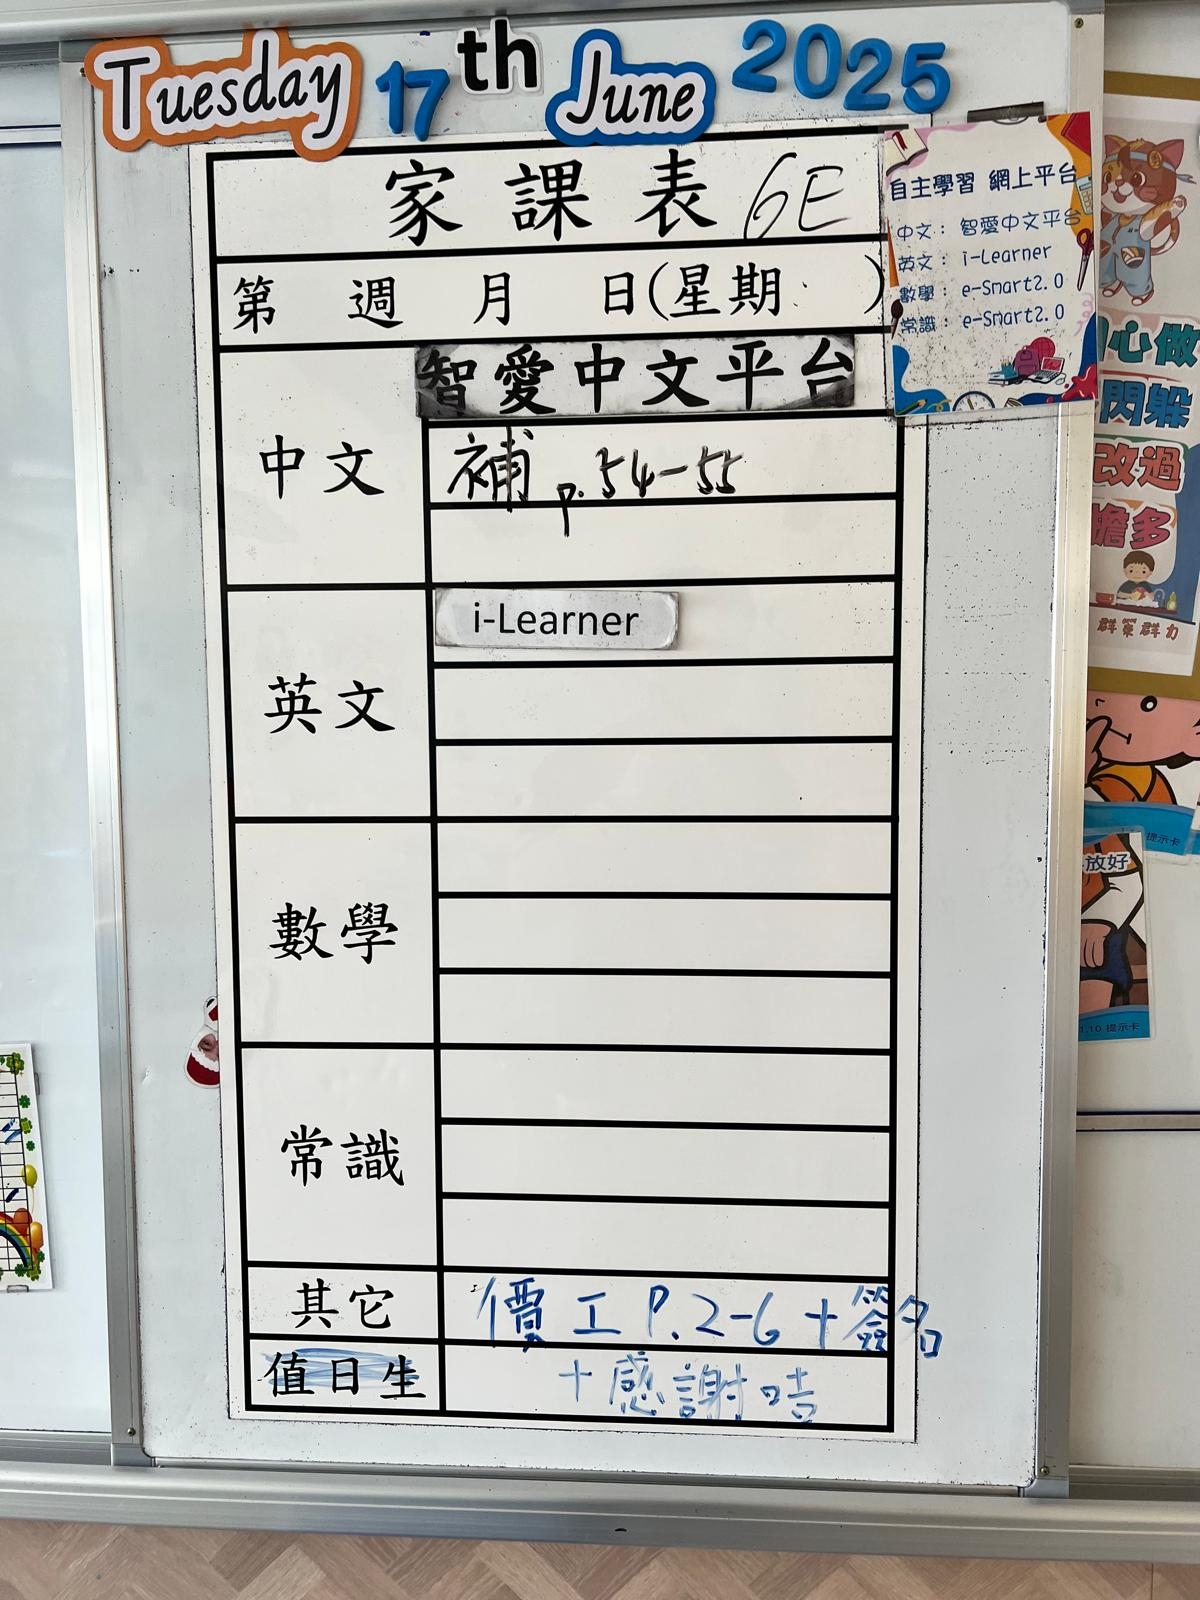 Tuesday 17th June 2025
家課表 6E
第 週 月 日(星期 )
自主學習 網上平台
中文： 智愛中文平台
英文： i-Learner
數學： e-Smart2.0
常識： e-Smart2.0
中文
智愛中文平台
補 p.54-55
英文
i-Learner
數學
常識
其它
價工 P.2-6 + 簽名
值日生
+感謝咭
心做
閃躲
改過
膽多
群策群力
提示卡
放好
1.10 提示卡